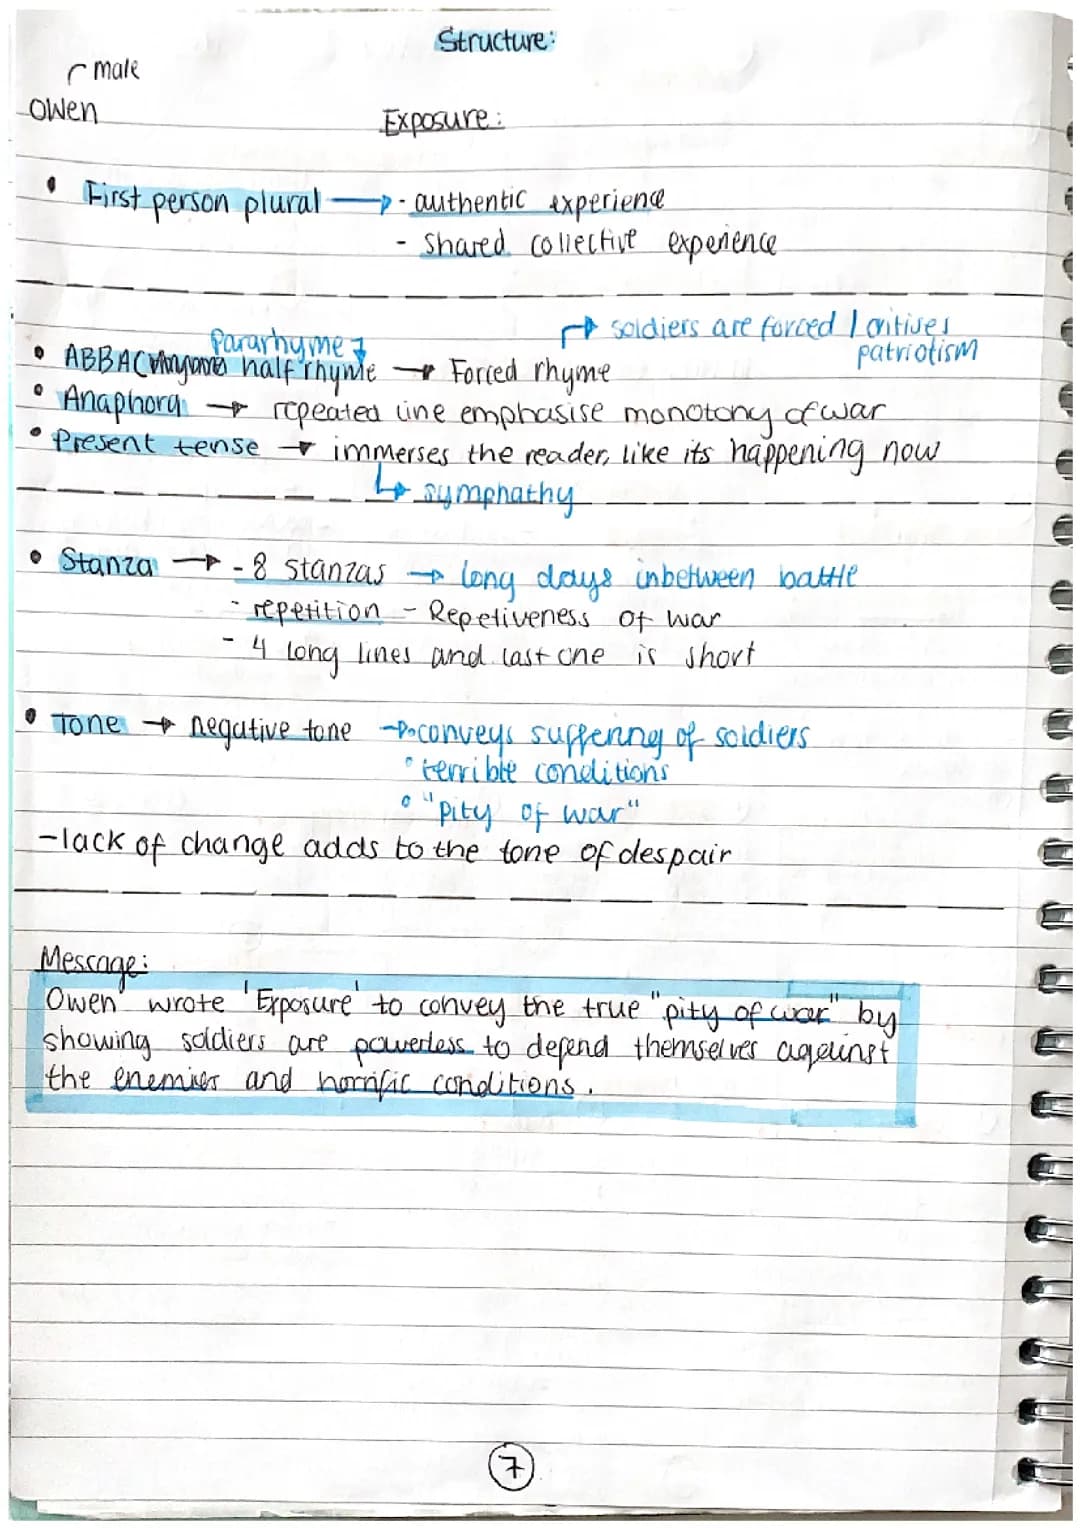 Structure:
male
Owen
Exposure:
• First person plural → - authentic experience
- shared collective experience
soldiers are forced / critises
patriotism
Pararhyme
• ABBAC half rhyme → Forced rhyme
• Anaphora → repeated line emphasise monotony of war
• Present tense → immerses the reader, like its happening now
↳ symphathy
• Stanza → - 8 stanzas → long days inbetween battle
- repetition - Repetiveness of war
- 4 long lines and last one is short
• Tone → negative tone → • conveys suffering of soldiers
• terrible conditions
• "pity of war"
- lack of change adds to the tone of despair
Message:
Owen wrote 'Exposure' to convey the true "pity of war" by
showing soldiers are powerless to defend themselves against
the enemies and horrific conditions.
7